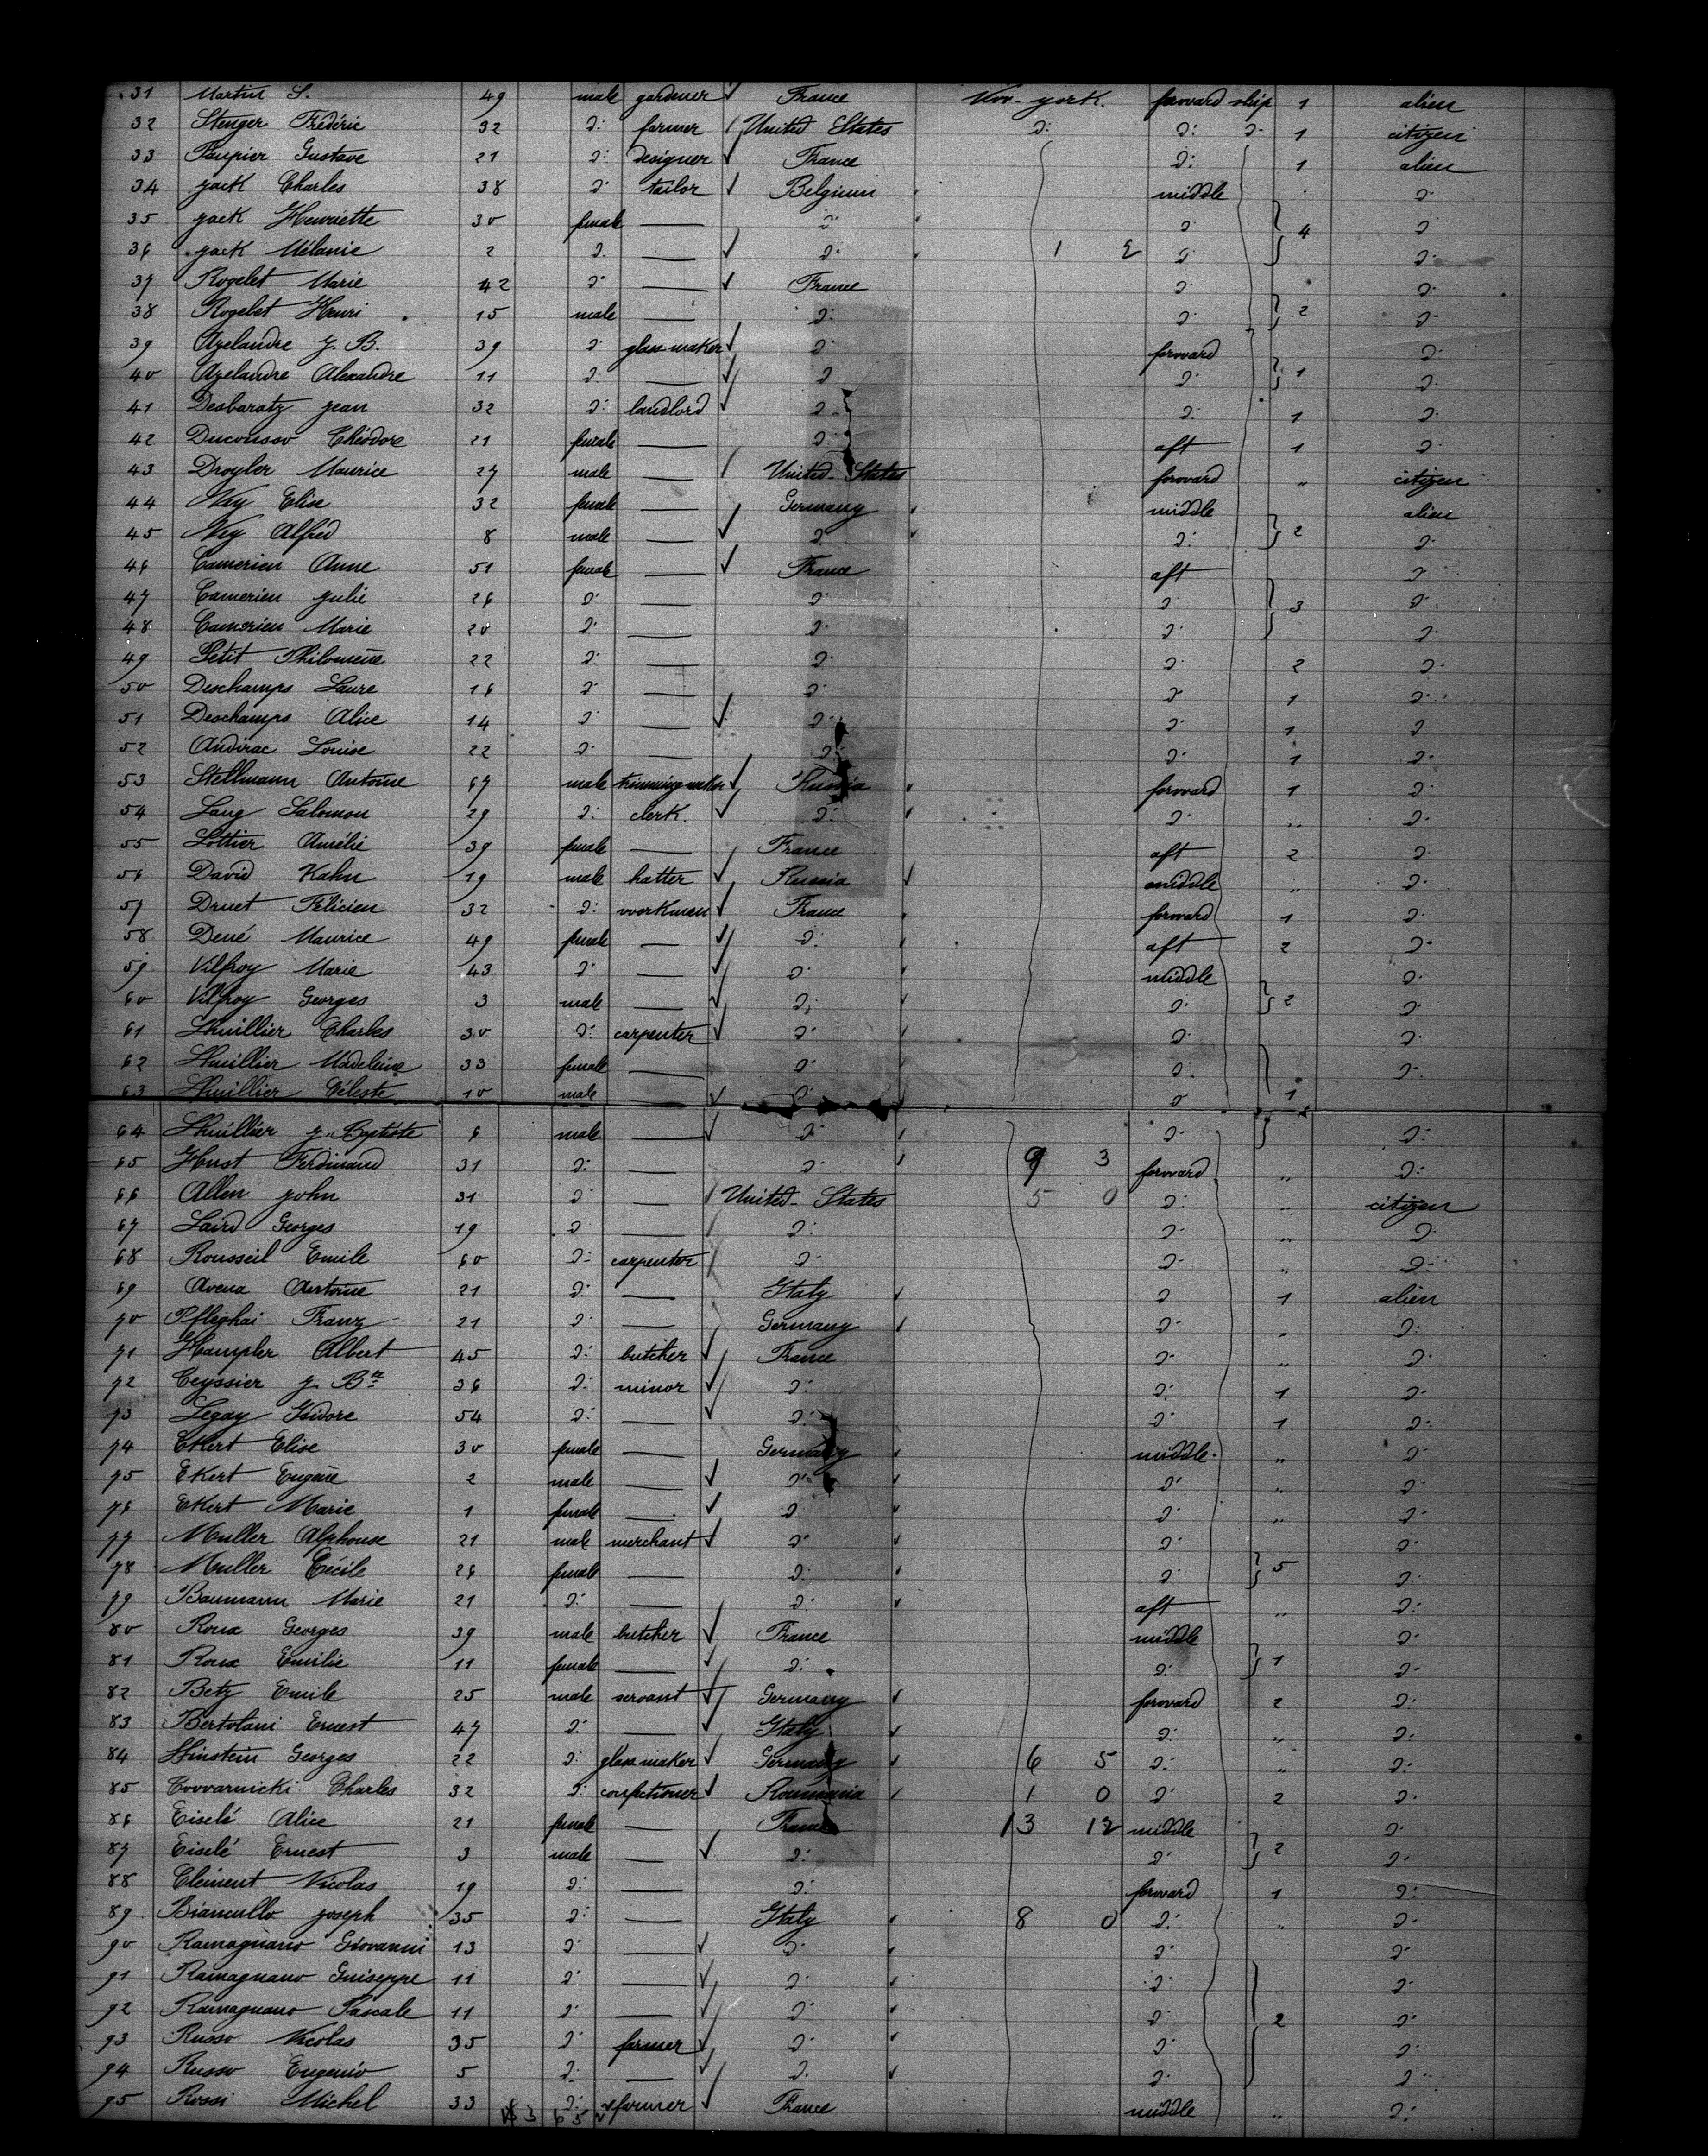 31 Martin S. 49 male gardener France New-york. forward ship 1 alien
32 Stenger Frédéric 32 d: farmer United States d: d: d. 1 citizen
33 Paupier Gustave 21 d: designer France d: 1 alien
34 jack Charles 38 d. tailor Belgium middle d.
35 jack Henriette 30 female d. d. 4 d
36 jack Mélanie 2 d. d. 1 2 d. d.
37 Rogelet Marie 42 d. France d. d.
38 Rogelet Henri 15 male d: d. 2 d.
39 Azelandre J. B. 39 d. glass maker d forward d.
40 Azelandre Alexandre 11 d. d d. 1 d.
41 Desbaratz jean 32 d: landlord d. d. 1 d.
42 Ducousso Théodore 21 female d. aft 1 d.
43 Droyler Maurice 27 male United-States forward " citizen
44 Nay Elise 32 female Germany middle alien
45 Ney Alfred 8 male d. d: 2 d.
46 Camerien Anne 51 female France aft d.
47 Camerien julie 26 d. d. d. 3 d.
48 Camerien Marie 20 d. d. d. d.
49 Petit Philomène 22 d. d. d. 2 d.
50 Deschamps Laure 16 d. d. d. 1 d.
51 Deschamps Alice 14 d. d. d. 1 d
52 Andirac Louise 22 d. d. d. 1 d.
53 Stellmann Antoine 67 male trimming maker Russia forward 1 d.
54 Lang Salomon 29 d: clerk. d: d. " d.
55 Lottier Aurélie 39 female France aft 2 d.
56 David Kahn 19 male hatter Russia middle " d.
57 Druet Félicien 32 d: workman France forward 1 d.
58 Dené Maurice 49 female d. aft 2 d.
59 Vilfroy Marie 43 d. d. middle d.
60 Vilfroy Georges 3 male d. d. 2 d.
61 Lhuillier Charles 30 d: carpenter d. d. d.
62 Lhuillier Madeleine 33 female d. d. d.
63 Lhuillier Céleste 10 male d. d 1
64 Lhuillier J. Baptiste 6 male d. d. d:
65 Hust Ferdinand 31 d: d. 9 3 forward " d:
66 Allen john 31 d. United-States 5 0 d: " citizen
67 Laird Georges 19 d. d: d. " d.
68 Rousseil Emile 60 d. carpenter d. d. " d.
69 Avena Antoine 21 d. Italy d 1 alien
70 Pfleghai Franz 21 d. Germany d. " d:
71 Hampler Albert 45 d: butcher France d. " d.
72 Ceyssier J. Bte 36 d: minor d: d: 1 d.
73 Legay Isidore 54 d: d. d. 1 d.
74 Ekert Elise 30 female Germany middle. " d.
75 Ekert Eugène 2 male d. d. " d.
76 Ekert Marie 1 female d. d. " d.
77 Muller Alphonse 21 male merchant d. d. d.
78 Muller Cécile 26 female d. d. 5 d:
79 Baumann Marie 21 d. d: aft " d:
80 Roux Georges 39 male butcher France middle d.
81 Roux Emilie 11 female d. d. 1 d.
82 Betz Emile 25 male servant Germany forward 2 d:
83 Bertolani Ernest 47 d. Italy d: " d.
84 Hinstein Georges 22 d: glass maker Germany 6 5 d: " d:
85 Covvarnicki Charles 32 d: confectioner Roumania 1 0 d. 2 d.
86 Eiselé Alice 21 female France 13 12 middle d.
87 Eiselé Ernest 3 male d: d. 2 d.
88 Clément Nicolas 19 d: d: forward 1 d:
89 Biancullo joseph 35 d: Italy 8 0 d: " d.
90 Ramagnano Giovanni 13 d. d. d. d.
91 Ramagnano Guiseppe 11 d. d. d. d.
92 Ramagnano Pascale 11 d. d. d. 2 d.
93 Russo Nicolas 35 d. farmer d. d. d.
94 Russo Eugenio 5 d. d. d. d.
95 Rossi Michel 33 d: farmer France middle " d: